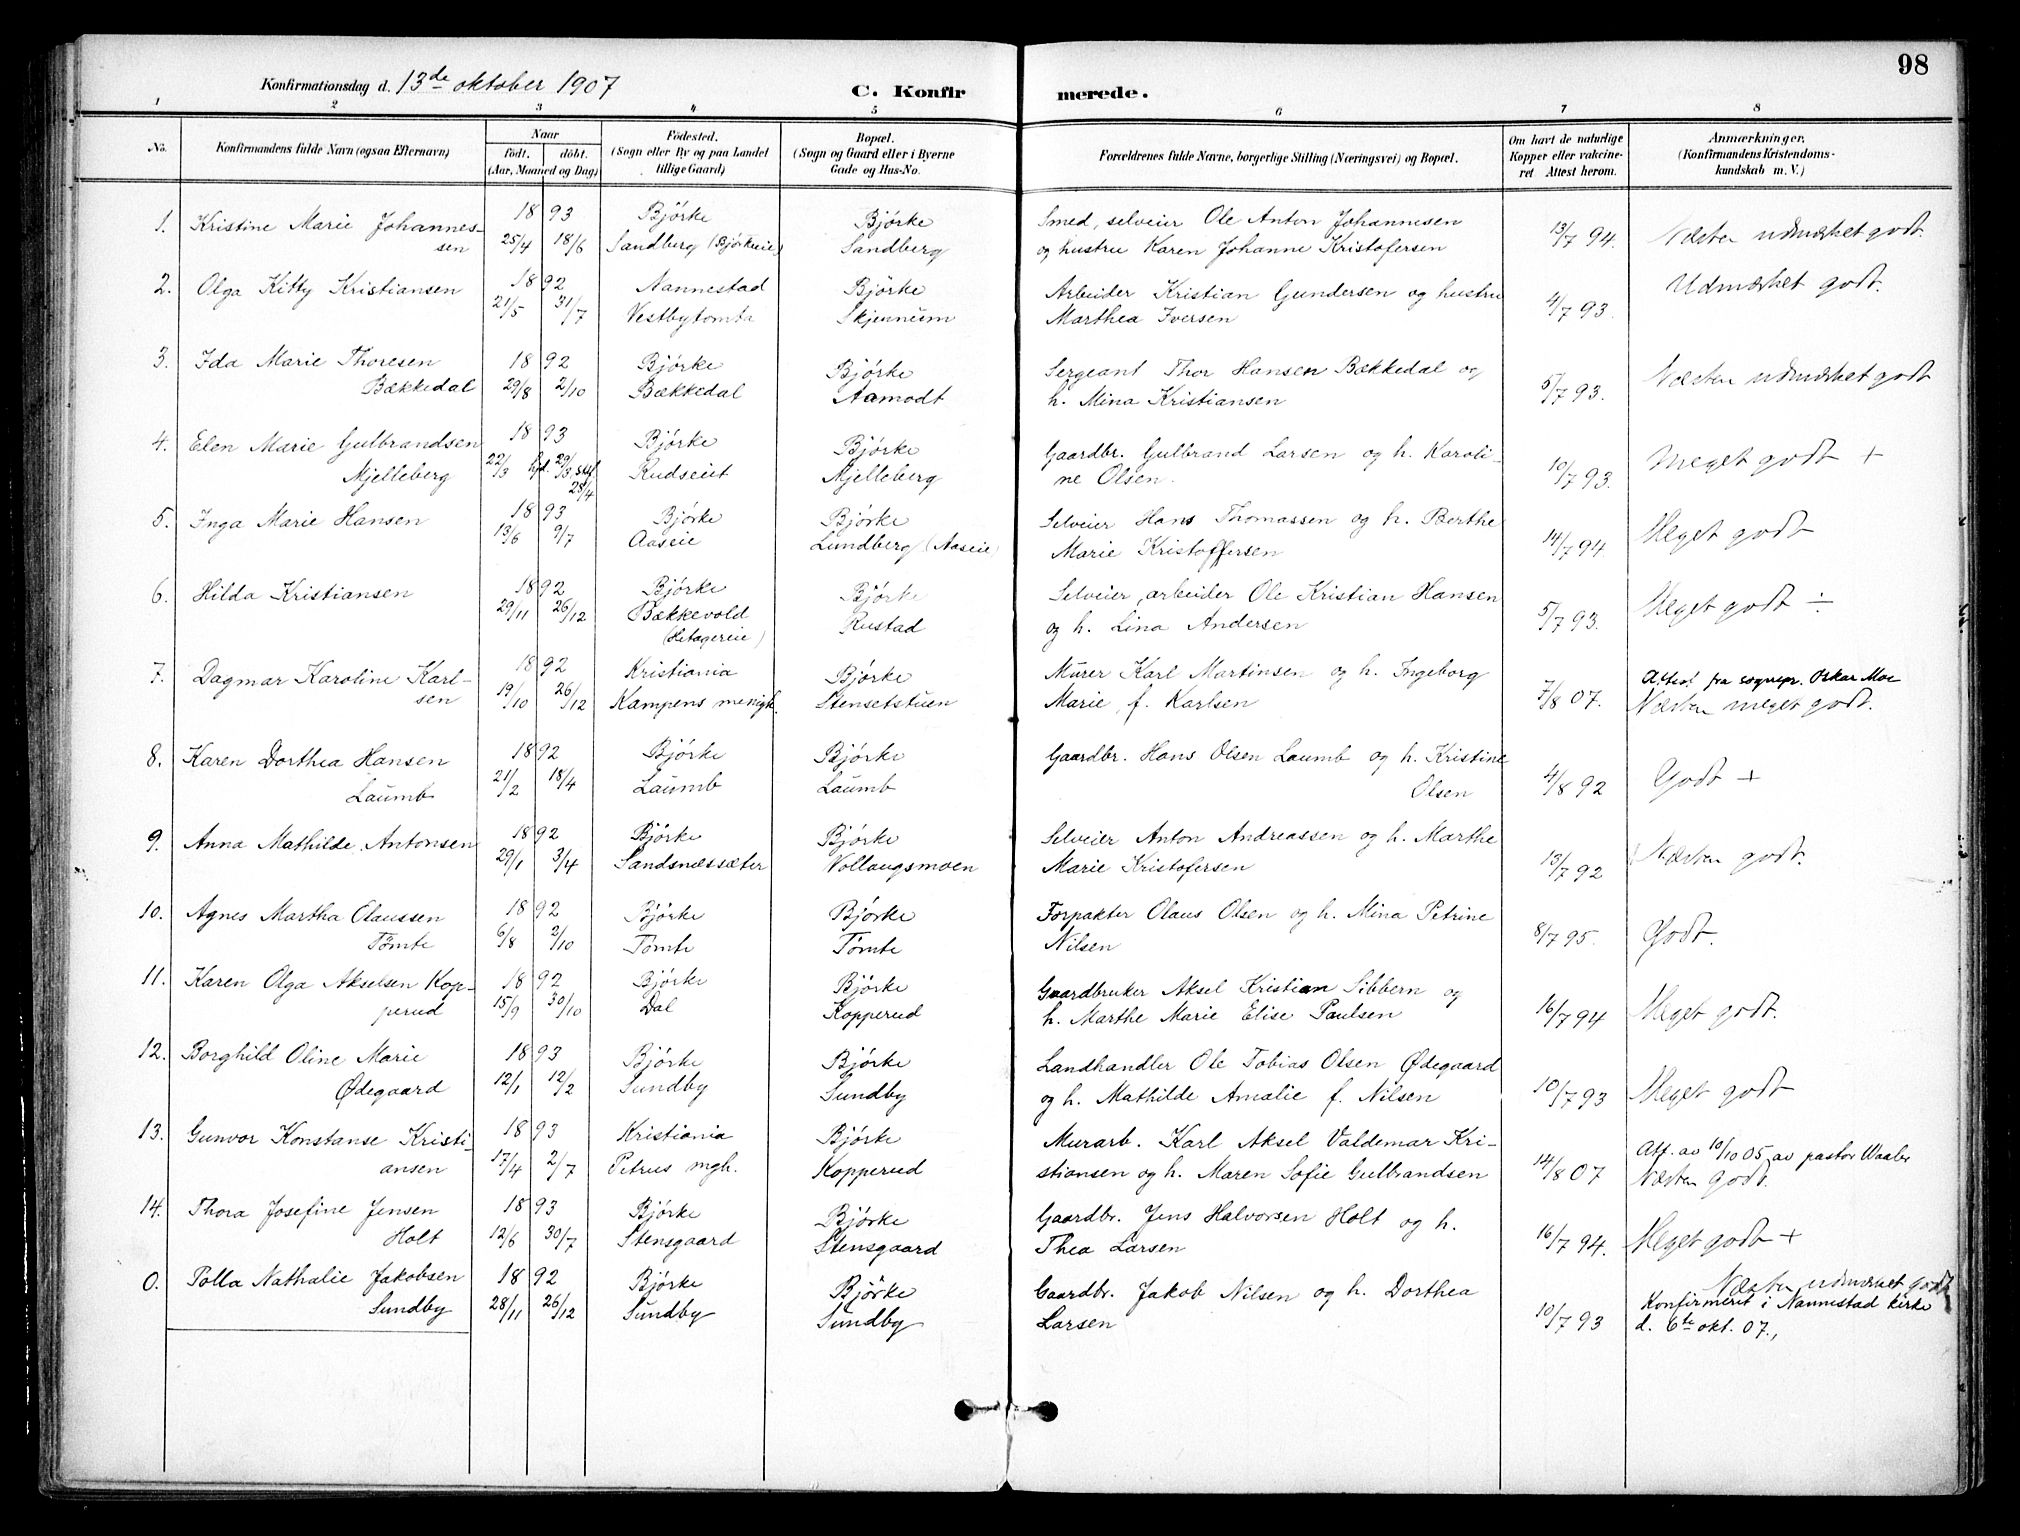 98
Konfirmationsdag d. 13de oktober 1907 C. Konfirmerede.
1 2 3 4 5 6 7 8
No. Konfirmandens fulde Navn (ogsaa Efternavn) Naar født. døbt. (Aar, Maaned og Dag) Fødested. (Sogn eller By og paa Landet tillige Gaard) Bopæl. (Sogn og Gaard eller i Byerne Gade og Hus-No. Forældrenes fulde Navne, borgerlige Stilling (Næringsvei) og Bopæl. Om havt de naturlige Kopper eller vakcineret Attest herom. Anmærkninger. (Konfirmandens Kristendomskundskab m. V.)
1. Kristine Marie Johannes- 1893 Bjørke Bjørke Smed, selveier Ole Anton Johannesen 13/7 94. Næsten udmærket godt.
sen 25/4 18/6 Sandberg (Bjørkeeie) Sandberg og hustru Karen Johanne Kristofersen
2. Olga Kitty Kristiansen 1892 Nannestad Bjørke Arbeider Kristian Gundersen og hustru 4/7 93. Udmærket godt.
21/5 31/7 Vestbytomta Skjennum Marthea Iversen
3. Ida Marie Thoresen 1892 Bjørke Bjørke Sergeant Thor Hansen Bækkedal og 5/7 93. Næsten udmærket godt
Bækkedal 29/8 2/10 Bækkedal Aamodt h. Mina Kristiansen
4. Elen Marie Gulbrandsen 1893 Bjørke Bjørke Gaardbr. Gulbrand Larsen og h. Karoli- 10/7 93. Meget godt +
Mjelleberg 22/3 hjd. 29/3 st. 28/4 Rudseiet Mjelleberg ne Olsen.
5. Inga Marie Hansen 1893 Bjørke Bjørke Selveier Hans Thomassen og h. Berthe 14/7 94 Meget godt
13/6 9/7 Aaseie Lundberg (Aaseie) Marie Kristoffersen
6. Hilda Kristiansen 1892 Bjørke Bjørke Selveier, arbeider Ole Kristian Hansen 5/7 93. Meget godt ÷
29/11 26/12 Bækkevold Rustad og h. Lina Andersen
(Hetagereie)
7. Dagmar Karoline Karl- 1892 Kristiania Bjørke Murer Karl Martinsen og h. Ingeborg 7/8 07. Attest fra sognepr. Oskar Moe
sen 19/10 26/12 Kampens menigh. Stensetstuen Marie, f. Karlsen Næsten meget godt.
8. Karen Dorthea Hansen 1892 Bjørke Bjørke Gaardbr. Hans Olsen Laumb og h. Kristine 4/8 92 Godt +
Laumb 21/2 18/4 Laumb Laumb Olsen
9. Anna Mathilde Antonsen 1892 Bjørke Bjørke Selveier Anton Andreassen og h. Marthe 13/7 92 Næsten godt.
29/1 3/4 Sandsnessæter Vollaugsmoen Marie Kristofersen
10. Agnes Martha Olaussen 1892 Bjørke Bjørke Forpakter Olaus Olsen og h. Mina Petrine 8/7 95. Godt.
Tømte 6/8 2/10 Tømte Tømte Nilsen
11. Karen Olga Akselsen Kop- 1892 Bjørke Bjørke Gaardbruker Aksel Kristian Sibbern og 16/7 94 Meget godt.
perud 15/9 30/10 Dal Kopperud h. Marthe Marie Elise Paulsen
12. Borghild Oline Marie 1893 Bjørke Bjørke Landhandler Ole Tobias Olsen Ødegaard 10/7 93 Meget godt
Ødegaard 12/1 12/2 Sundby Sundby og h. Mathilde Amalie f. Nilsen
13. Gunvor Konstanse Kristi- 1893 Kristiania Bjørke Murarb. Karl Aksel Valdemar Kri- 14/8 07 Att. av 10/10 05 av pastor Waaler
ansen 17/4 2/7 Petrus mgh. Kopperud stiansen og h. Maren Sofie Gulbrandsen Næsten godt.
14. Thora Josefine Jensen 1893 Bjørke Bjørke Gaardbr. Jens Halvorsen Holt og h. 16/7 94. Meget godt +
Holt 12/6 30/7 Stensgaard Stensgaard Thea Larsen
0. Polla Nathalie Jakobsen 1892 Bjørke Bjørke Gaardbr. Jakob Nilsen og h. Dorthea 10/7 93 Næsten udmærket godt
Sundby 28/11 26/12 Sundby Sundby Larsen Konfirmeret i Nannestad kirke
d. 6te okt. 07.,